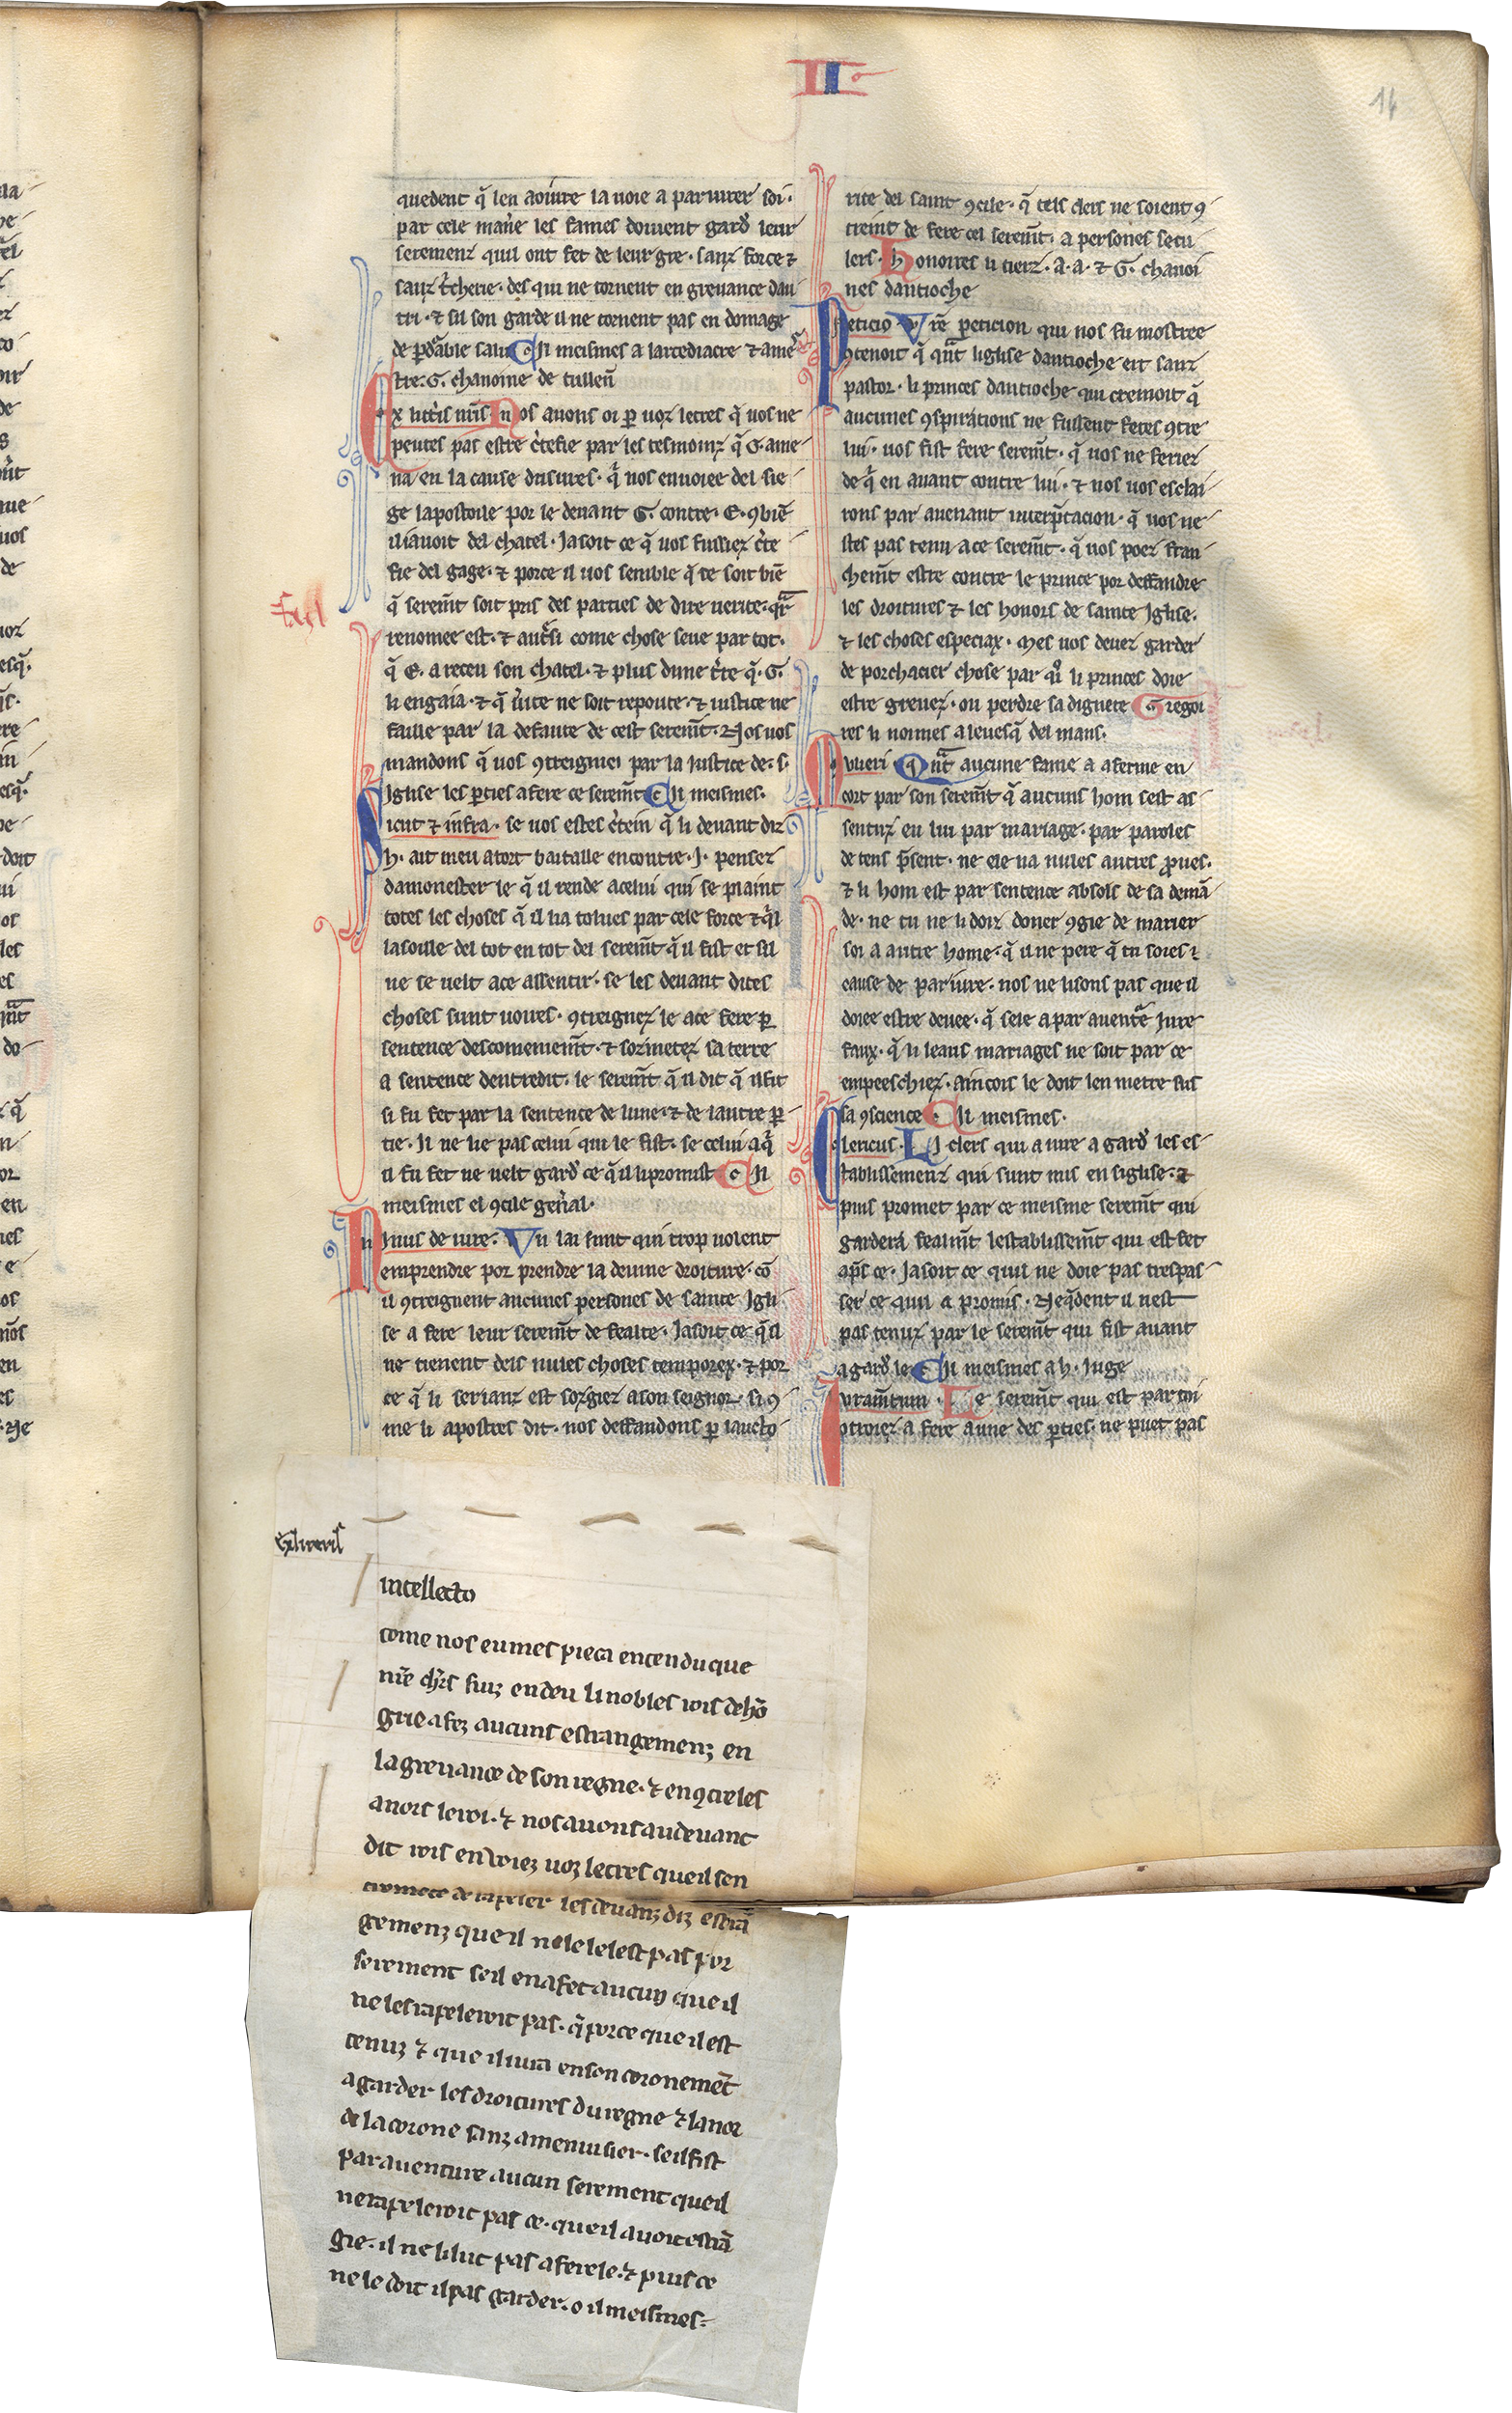 II
14
quedent q̄ len aoiure la uoie a pariurer soi·
par cele mañe les fames doiuent gard̾ leur
seremenz quil ont fet de leur gre· sanz force ⁊
sanz t̾cherie· des qui ne tornent en greuance dau
tri· ⁊ sil son garde il ne tornent pas en domage
de p̱d̾able salu Cil meismes a larcediacre ⁊ a me
stre·G· chanoine de tullen̄
Ex litt̾is nr̄is· Nos auons oi p̱ uoz letres q̄ uos ne
peutes pas estre c̾tefie par les tesmoinz q̄ G· ame
na en la cause dusures· q̄ nos enuoiee del sie
ge lapostoile por le deuant G· contre· E· ꝯbiē
il iauoit del chatel· Ja soit ce q̄ uos fussiez c̾te
fie del gage· ⁊ por ce il uos semble q̄ ce soit biē
q̄ serem̄t soit pris des parties de dire uerite· qr̄
renomee est· ⁊ aut̾si come chose seue par tot·
q̄ E· a receu son chatel· ⁊ plus dune c̾te q̄· G·
li engaia· ⁊ q̄ u̾ite ne soit repoute· ⁊ iustice ne
faille par la defaute de cest serem̄t· Nos uos
mandons q̄ uos ꝯtreigniei par la iustice de· s·
Iglise les p̱ties a fere ce serem̄t Cil meismes·
Sicut ⁊ infra· se uos estes c̾tein q̄ li deuant diz
h· ait meu a tort bataille encontre· J· pensez
damonester le q̄ il rende a celui qui se plaint
totes les choses q̄ il li a tolues par cele force ⁊ q̄l
lasoille del tot en tot del serem̄t q̄ il fist et sil
ne se uelt a ce assentir· se les deuant dites
choses sunt uoires· ꝯtreignez le a ce fere p̱
sentence descomeniem̄t· ⁊ sozmetez sa terre
a sentence dentredit· le serem̄t q̄ il dit q̄ il fit
si fu fet par la sentence de lune· ⁊ de lautre p̱
tie· Il ne lie pas celui qui le fist· se celui a q̄
il fu fet ne uelt gard̾ ce q̄ il li promist Cil
meismes el ꝯcile gen̾al·
Nimis de iure· Un lai sunt qui trop uolent
emprendre por prendre la deuine droiture· cō
il ꝯtreignent aucunes persones de sainte Igli
se a fere leur serem̄t de fealte· Ja soit ce q̄ il
ne tienent dels nules choses temporex· ⁊ por
ce q̄ li serianz est sozgiez a son seignor· si ꝯ
me li apostres dit· nos deffandons p̱ laucto
rite del saint ꝯcile· q̄ tels clers ne soient ꝯ
treint de fere cel serem̄t· a persones secu
lers· Honoires li tierz· A· A· ⁊ G· chanoi
nes dantioche
Peticio· Vr̄e peticion qui nos fu mostree
ꝯtenoit q̄ qn̄t liglise dantioche eit sanz
pastor· li princes dantioche qui cremoit q̄
aucunes ꝯspirations ne fussent fetes ꝯtre
lui· uos fist fere serem̄t· q̄ uos ne feriez
de q̄ en auant contre lui· ⁊ uos uos esclai
rons par auenant interp̄tacion· q̄ uos ne
stes pas tenu a ce serem̄t· q̄ uos poez fran
chem̄t estre contre le prince por deffandre
les droitures ⁊ les honors de sainte Iglise·
⁊ les choses especiax· Mes uos deuez garder
de porchacier chose par q̄i li princes doie
estre greuez· ou perdre sa dignete Gregoi
res li noimes a leuesq̄ del mans·
Mulieri· Qn̄t aucune fame a aferme en
cort par son serem̄t q̄ aucuns hom sest as
sentuz en lui par mariage· par paroles
de tens p̄sent· ne ele na nules autres ꝓues·
⁊ li hom est par sentence absols de sa demā
de· ne tu ne li doiz doner ꝯgie de marier
soi a autre home· q̄ il ne pere q̄ tu soies ī
cause de pariure· nos ne lisons pas que il
doiee estre deuee· q̄ sele a par auent̾e Jure
faux· q̄ li leaus mariages ne soit par ce
empeeschiez· Ainçois le doit len metre sus
sa ꝯscience Cil meismes·
Clericus· Li clers qui a iure a gard̾ les es
tablissemenz qui sunt mis en siglise· ⁊
puis promet par ce meisme serem̄t qui
gardera fealm̄t lestablissem̄t qui est fet
ap̄s ce· Ja soit ce quil ne doie pas trespas
ser ce quil a promis· Neq̄dent il nest
pas tenuz par le serem̄t qui fist auant
a gard̾ le Cil meismes a h· Juge
Juram̄tum· Le serem̄t qui est par toi
otroiez a fere a une des p̱ties· ne puet pas
intellecto
come nos eumes pieca entendu que
nr̄e ch̾rs fiuz en deu li nobles rois de hō
grie a fez aucuns estrangemenz en
la greuance de son regne· ⁊ enꝯtre les
anors le roi· ⁊ nos auons au deuant
dit rois enuoiez uoz letres que il sen
tremete de rapeler les deuanz diz estrā
gemenz que il ne le lest pas por
serement seil en a fet aucun que il
ne les rapeleroit pas· q̄ por ce que il est
tenuz ⁊ que il iura en son coronemēt
a garder les droitures du regne ⁊ lanor
de la corone sanz amenuisier· seil fist
par auenture aucun serement que il
ne rapeleroit pas ce· que il auoit estrā
gie· il ne li lut pas a fere le· ⁊ puis ce
ne le doit il pas garder· o il meismes·